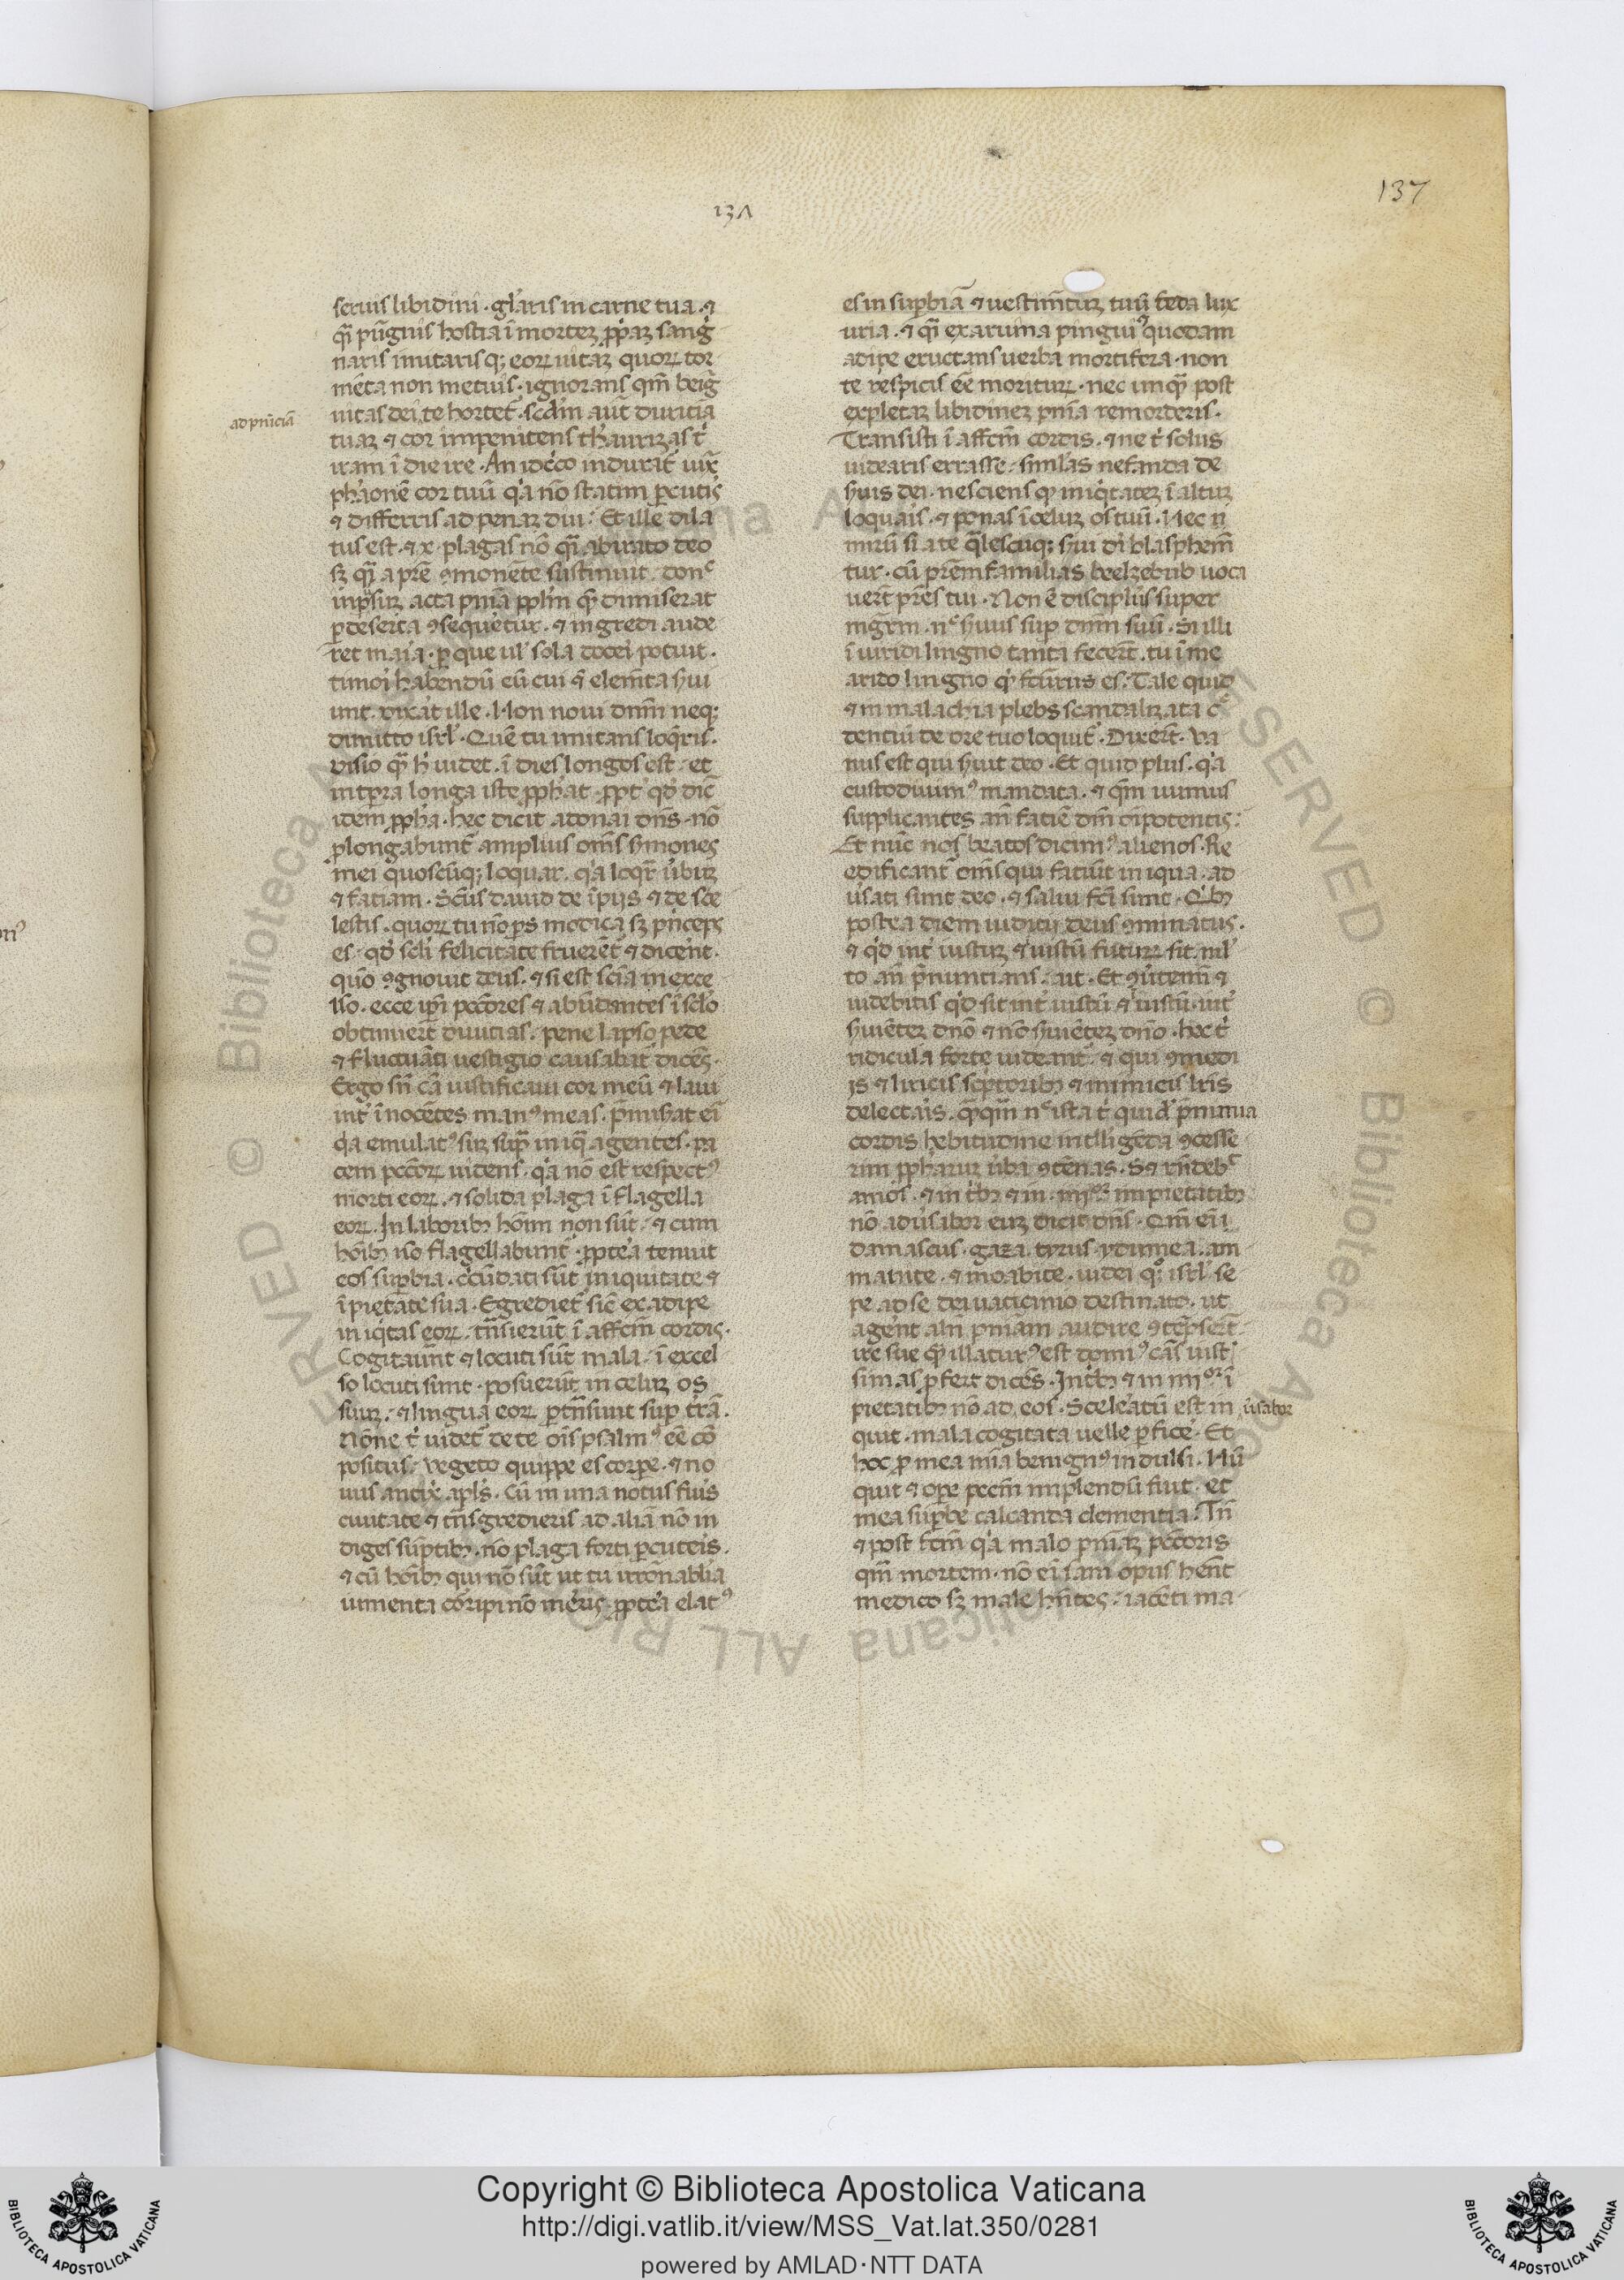 137
13Λ
seruis libidini · gl'aris in carne tua · ⁊
q̄i pīguis hostia ī mortez ꝓp̄az sang̍
naris imitarisq; eoꝝ uitaz quoꝝ tor
mēta non metuis · ignorans qm̄ benig̅
nitas dei te hortet̄ · scd̄m aūt duritiā
ad pn̄iciā
tuaz ⁊ cor impenitens th'aurizas t̍
iram ī die ire · An idc̍co indurat̄ ur̄
ph'aonē cor tuū q̍a nō statim ꝑcutis
⁊ differris ad penaz diu · Et ille dila
tus est · ⁊ x · plagas nō q̄i ab irato deo
sz q̄i a prē ꝯmonēte sustinuit · donᶜ
in p̄siz acta pn̄ia pplm̄ qm̄ dimiserat
ꝑ deserta ꝯsequet̄ur · ⁊ ingredi aude
ret maria · ꝑ que ul' sola doceri potuit
timorē habendū eū cui ⁊ elem̄ta s̄ui
unt · dix̍at ille · Non noui dnm̄ neq;
dimitto isrl' · Quē tu imitans loq̍ris ·
uisio qm̄ h̍ uidet · ī dies longos est · et
in tp̄ra longa iste ꝓph'at · ꝓpt̍ qd̍ dic̄
idem ꝓph'a · hec dicit adonai dn̄s · nō
ꝓlongabunt̄ amplius om̄s s̄mones
mei quoscūq; loquar · q̍a loq̍r u̍buz
⁊ fatiam · Scūs dauid de īpijs ⁊ de sce
lestis · quoꝝ tu nō ps modica sz p̍nceps
es · qd̍ scl'i felicitate fruerēt̄ ⁊ dicēnt ·
quō ꝯgnouit deus · ⁊ si est scīa in exce
lso · ecce ip̄i pecc̄ores ⁊ abūdantes ī scl'o
obtinuert̄ diuitias · pene lapso pede
⁊ fluctuāti uestigio causabat̄ dicēs ·
Ergo sn̄ cā iustificaui cor meū ⁊ laui
int̍ īnocētes man⁹ meas · p̄misat ei̍
q̍a emulat⁹ siz sup̄ iniq̄ agentes · pa
cem pecc̄oꝝ uidens · q̍a nō est respect⁹
morti eoꝝ · ⁊ solida plaga ī flagella
eoꝝ · In laborib₃ hoīm non sūt · ⁊ cum
hoīb₃ nō flagellabunt̄ · ꝓpt̍ea tenuit
eos sup̄bia · c̍cūdati sūt iniquitate ⁊
īpietate sua · Egrediet̄ sic̄ ex adipe
iniq̍tas eoꝝ · tn̄sierūt ī affcm̄ cordis ·
Cogitaūnt ⁊ locuti sūt mala · ī excel
so locuti sunt · posuerūt in celuz os
suuz · ⁊ lingua eoꝝ ꝑtn̄siunt sup̄ t̍rā ·
Nōne t̍ uidet̄ de te oīs psalm⁹ eē cō
positus · Vegeto quippe es corpe · ⁊ no
uus antix̄ apl's · Cū in una notus fuis
ciuitate ⁊ tn̄sgredieris ad aliā nō in
diges sūptib₃ · nō plaga forti ꝑcuteis ·
⁊ cū hoīb₃ qui nō sūt ut tu irrōnab̄lia
iumenta corripi nō mēris · ꝓpt̍ea elat⁹
es in sup̄biā ⁊ uestim̄tuz tuū feda lux
uria · ⁊ q̄i ex aruina pingui⁹ quodam
adipe eructans uerba mortifera · non
te respicis eē morituꝝ · nec unq̄ post
expletaz libidinez pn̄ia remorderis ·
Transisti ī affcm̄ cordis · ⁊ ne t̍ solus
uidearis errasse · simulas nefanda de
s̄uis dei · nesciens qꝫ iniq̍tatez ī altuz
loquais · ⁊ ponas ī celuz os tuū · Nec n̍
miruz si a te q̄lescūq; s̄ui di̍ blasphem̄
tur · cū prem̄familias beelzebub uoca
uert̄ pr̄es tui · Non ē discipl'us super
mgr̄m · nᶜ s̄uus sup̄ dnm̄ suū · Si illi
ī uiridi lingno tanta fecert̄ · tu ī me
arido lingno q̍ fcūrus es · Tale quid
⁊ in malachia plebs scandalizata c̄
dentiū de ore tuo loquit̄ · Dixert̄ · Va
nus est qui s̄uit deo · Et quid plus · q̍a
custodiuim⁹ mandata · ⁊ qm̄ iuimus
supplicantes an̄ fatiē dn̄i oīpotentis ·
Et nūc nos beatos dicim⁹ alienos · Re
edificant̄ om̄s qui fatiūt iniqua · ad
u̍sati sunt deo · ⁊ salui fc̄i sunt · Q̍b₃
postea diem iuditij deus ꝯminatus ·
⁊ qd̍ int̍ iustuz ⁊ īiustū futuꝝ sit mul
to an̄ p̄nuntians · ait · Et ꝯu̍temī ⁊
uidebitis qd̍ sit int̍ iustū ⁊ īiustū · int̍
s̄uiētez dno̅ ⁊ nō s̄uiētez dn̄o · hec t̍
ridicula forte uideant̄ · ⁊ qui ꝯmedi
is ⁊ liricis sc̍ptorib₃ ⁊ mimicis lr̄is
delectais · q̄q̄m nᶜ ista t̍ quid̄ p̄ nimia
cordis hebitudine intlligēda ꝯcesse
rim ꝓph'aruz u̍ba ꝯtēnas · Set rn̄debᶜ
amos · ⁊ in t̍b₃ ⁊ in · iiijᵒʳ impietatib₃
nō adu̍sabor euz dicit dn̄s · Qm̄ en̄i
damascus · gaza · tyrus · ydumea · am
manite · ⁊ moabite · iudei q₃ · isrl' se
pe ad se dei uaticinio destinato · ut
agēnt alii pn̄iam audire ꝯtēpsert̄
ire sue q̄ illatur⁹ est domin⁹ cās iust
simas ꝓfert dicēs · In t̍b₃ ⁊ in iiijᵒʳ ī
pietatib₃ nō ad eos · Sceleatū est in
u̍sabor
quit · mala cogitata uelle ꝑfice · Et
hoc ꝓ mea mīa benign⁹ indulsi · Nū
quit ⁊ ope pccm̄ implendū fuit · et
mea sup̄be calcanda clementia · Tn̄
⁊ post fcm̄ q̍a malo pn̄iaz pecc̄oris
qm̄ mortem · nō ei̍ sani opus hent̄
medico sz male hn̄tes · iacēti ma
Copyright © Biblioteca Apostolica Vaticana
http://digi.vatlib.it/view/MSS_Vat.lat.350/0281
powered by AMLAD·NTT DATA